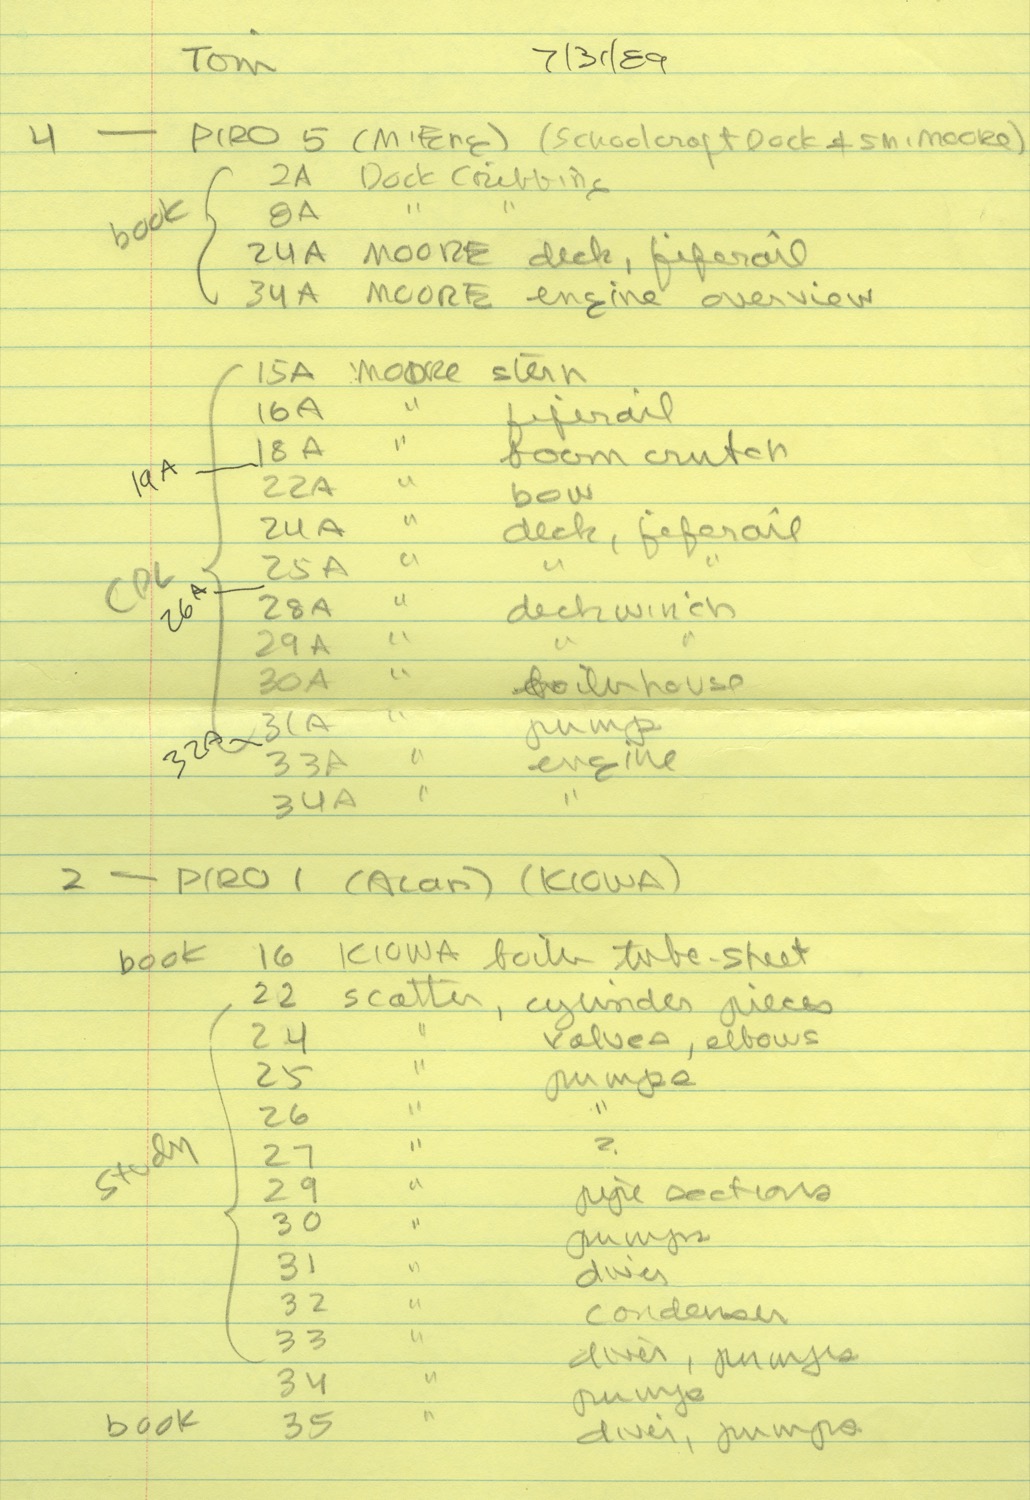 Tom 7/31/89
4 — PIRO 5 (M'Eng) (Schoolcraft Dock & SM. MOORE)
book 2A Dock Cribbing
8A " "
24A MOORE deck, fiferail
34A MOORE engine overview
15A MOORE stern
16A " fiferail
18A " boom crutch
19A
22A " bow
24A " deck, fiferail
25A " " "
26A
28A " deck winch
29A " " "
30A " boilerhouse
31A " pump
32A
33A " engine
34A " "
2 — PIRO 1 (Alan) (KIOWA)
book 16 KIOWA boiler tube-sheet
22 scatter, cylinder pieces
24 " valves, elbows
25 " pumps
26 " "
27 " ?
study 29 " pipe sections
30 " pumps
31 " diver
32 " condenser
33 " diver, pumps
34 " pumps
book 35 " diver, pumps